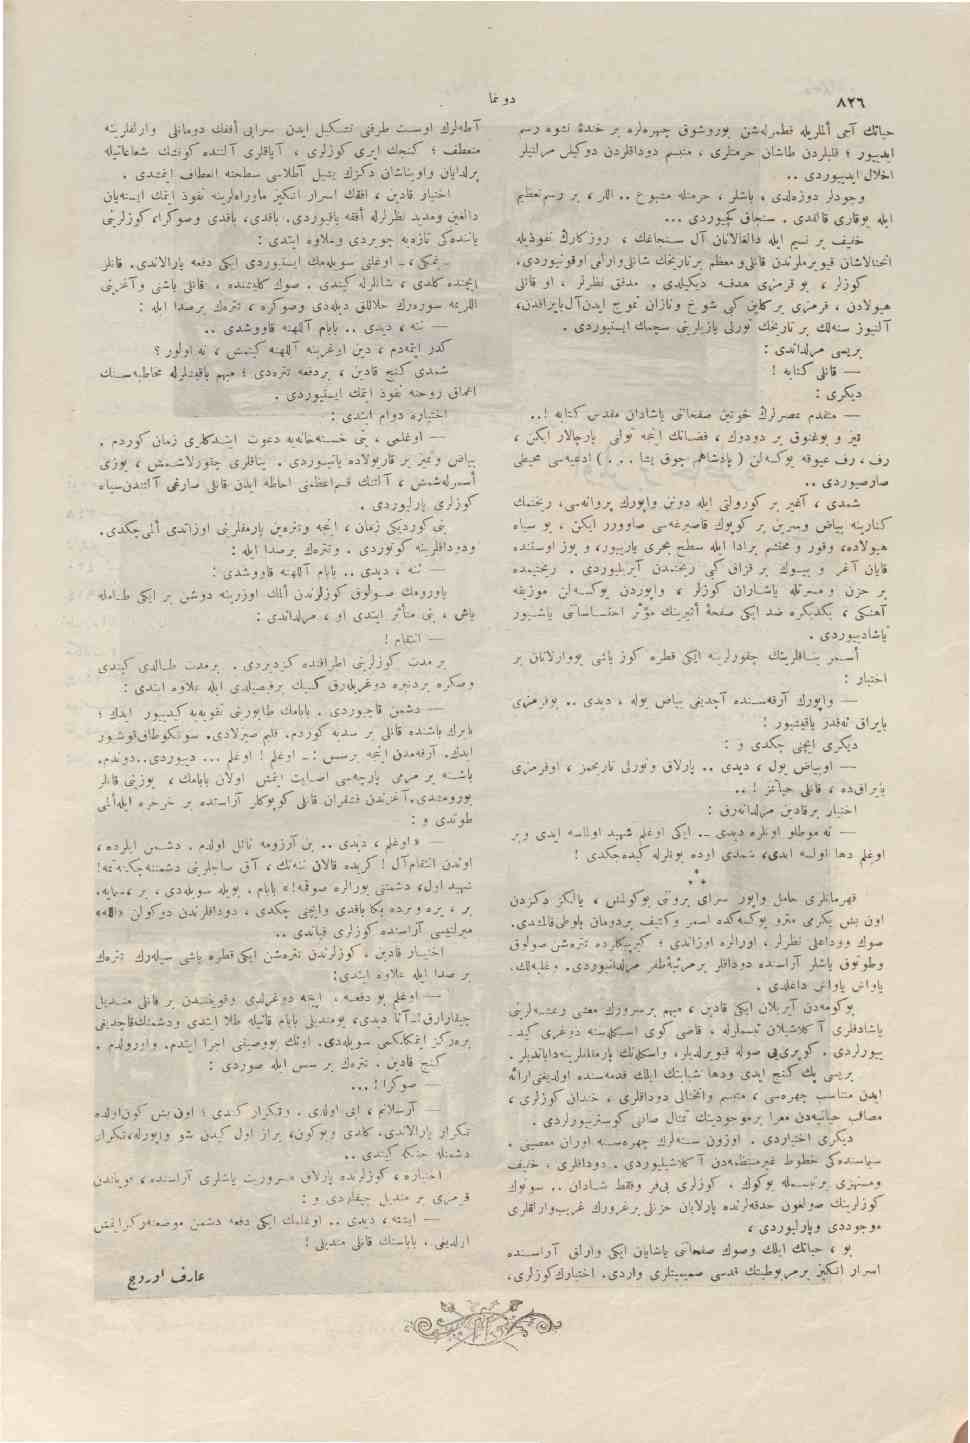 ٨٢٦
دونما
حیاتك آجی ألملریله قطمرله‌شن بوروشوق چهره‌لره بر خندهٔ نشوه رسم
ایدییور ؛ قلبلردن طاشان حرمتلری ، متبسم دوداقلردن دوكیلن
اخلال ایدییوردی ..
وجودلر دوزه‌لدی ، باشلر ، حرمتله متبوع .. اللر ، بر رسم تعظیم
ایله یوقاری قالقدی . سنجاق كچیوردی ...
خفیف بر نسیم ایله دالغالانان آل سنجاغك ، روزكارك نفوذیله
انحنالاشان قیوریملرندن قانلی و معظم بر تاریخك شانلی وارلغی اوقونیوردی،
كوزلر ، بو قرمزی هدفه دیكیلدی . مدقق نظرلر ، او قانلی
هیولادن ، قرمزی بر كلین كبی شوخ و نازان تموج ایدن آل بایراقدن،
آلتیوز سنه‌لك بر تاریخك تورلی یازیلرینی سچمك ایستیوردی .
بریسی مرلداندی :
— قانلی كتابه !
دیكری :
— متقدم عصرلرك خونین صفحاتنی یاشادان مقدس كتابه !..
قیز و بوغنوق بر دودوك ، فضانك ایجه تولنی پارچالار ایكن ،
رف، رف عیوقه یوكسه‌لن ( پادشاهم چوق یشا ... ) ادعیه‌سی محیطی
صارصیوردی ..
شمدی ، آغیر بر كورولتی ایله دونن واپورك پروانه‌سی، ریختمك
كنارینه بیاض و سرین بر كوپوك قاصیرغه‌سی صاوورر ایكن ، بو سیاه
هیولاده، وقور و محتشم برادا ایله سطح بحری یارییور، و یوز اوستنده
قایان آغر و بیوك بر قزاق كبی ریختمدن آیریلیوردی . ریختیمده
بر حزن و مسرتله یاشاران كوزلر ، واپوردن یوكسه‌لن موزیقه
آهنكی ، یكدیكره ضد ایكی صفحهٔ أثیرینك مؤثر احتساساتی یاشییور
یاشادییوردی .
أسمر یناقلرینك چقورلرینه ایكی قطره كوز یاشی یووارلانان بر
اختیار :
— واپورك آرقه‌سنده آچدیغی بیاض یوله ، دیدی .. بو قرمزی
بایراق نه‌قدر یاقیشیور :
دیكری ایچنی چكدی و :
— او بیاض یول ، دیدی .. پارلاق و نورلی تاریخمز ، او قرمزی
بایراق‌ده ، قانلی حیاتمز ! ..
اختیار بر قادین مرلدانه‌رق :
— نه موطلو اونلره دیدی .. ایكی اوغلم شهید اولماسه ایدی و بر
اوغلم دها اولسه ایدی، شمدی اوده بونلرله كیده‌جكدی !
***
قهرمانلری حامل واپور سرای برونی بوكولمش ، یالكز دكزدن
اون بش یكرمی مترو یوكسكده اسمر و كثیف بر دومان بلوطی قالمشدی.
صوك وداعلی نظرلر ، اورالره اوزاندی ؛ كیرپیكلرده تتره‌شن صولوق
و طونوق یاشلر آراسنده دوداقلر بر مرثیهٔ ظفر مرلدانیوردی. و غلبه‌لك،
یاواش یاواش داغلدی .
بو كومه‌دن آیریلان ایكی قادین ، مبهم بر سرورك معشی رعشه‌لرینی
یاشادقلری آكلاشیلان تبسملرله ، قاضی كوی اسكله‌سنه دوغری كید-
ییورلردی . كوپری‌یی صوله قیوریلدیلر، و اسكله‌نك پارمقلقلرینه دایاندیلر.
بریسی پك كنج ایدی و دها شبابتك ایلك قدمه‌سنده اولدیغنی ارائه
ایدن متناسب چهره‌سی ، متبسم و انحنالی دوداقلری ، خندان كوزلری ،
مصائب حیاتیه‌دن معرا بر موجودیتك تمثال صافی كوستریورلردی .
دیكری اختیاردی . اوزون سنه‌لرك چهره‌سنه اوران معصیتی .
سیماسنده‌كی خطوط غیر منتظمه‌دن آكلاشیلیوردی . دوداقلری ، خفیف
و مستهزی بر تبسمله بوكوك ، كوزلری بی‌فر و فقط شادان .. سونوك
كوزلرینك صولغون حدقه‌لرنده پارلایان حزنلی بر غرورك غریب وارلقلری
موجوددی و پارلیوردی ،
بو ، حیاتك ایلك و صوك صفحاتنی یاشایان ایكی وارلق آراسنده
اسرار انكیز بر مربوطیتك قدسی صمیمیتلری واردی. اختیارك كوزلری،
آطه‌لرك اوست طرفنی تشكیل ایدن سرابی أفقك دومانلی وارلقلرینه
منعطف ؛ كنجك ایری كوزلری ، آیاقلری آلتنده كونشك شعاعاتیله
پرلدایان و اویناشان دكزك یشیل آطلاسی سطحنه انعطاف ایتمشدی .
اختیار قادین ، افقك اسرار انكیز ماورالرینه نفوذ ایتمك ایسته‌یان
دالغین و مدید نظرلرله أفقه باقیوردی. باقدی، باقدی و صوكرا، كوزلرینی
یاننده‌كی تازه‌یه چویردی و علاوه ایتدی :
ایچنده كلدی ، شانلرله كیتدی . صوك كلدیكنده ، قانلی باشی و آغزینی
اللریمه سوره‌رك حلاللق دیله‌دی و صوكره ، تتره‌ك بر صدا ایله :
— ننه ، دیدی .. بابام آللهنه قاووشدی ..
كدر ایتمه‌دم ، دین اوغرینه آللهنه كیتمش ، نه اولور ؟
شمدی كنج قادین ، بردفعه تتره‌دی ؛ مبهم باقیشلرله مخاطبه‌سنك
اعماق روحنه نفوذ ایتمك ایستیوردی .
اختیاره دوام ایتدی :
— اوغلمی ، بنی خسته‌خانه‌یه دعوت ایتدكلری زمان كوردم .
بیاض و تمیز بر قاریولاده یاتیوردی . یناقلری چقورلاشمش ، یوزی
أسمرله‌شمش ، آلتنك قسم اعظمنی احاطه ایدن قانلی صارغی آلتندن سیاه
كوزلری پارلیوردی .
بنی كوردیكی زمان ، ایجه و تتره‌ین پارمقلرینی اوزاتدی ألمی چكدی.
و دوداقلرینه كوتوردی . و تتره‌ك بر صدا ایله :
— ننه ، دیدی .. بابام آللهنه قاووشدی :
یاورومك صولوق كوزلرندن ألمك اوزرینه دوشن بر ایكی طامله
یاش ، بنی متأثر ایتدی او ، مرلداندی :
— انتقام !
بر مدت كوزلرینی اطرافنده كزدیردی . بر مدت طالدی كیتدی
و صكره بردنبره دوغریله‌رق كسیك بر فیصیلدی ایله علاوه ایتدی :
— دشمن قاچیوردی . بابامك طابورینی تقویه‌یه كیدییور ایدك ؛
بابرك باشنده قانلی بر سدیه كوردم. قلبم صیزلادی. سونكو طاق قوشیور
ایدك. آرقه‌مدن اینجه بر سس :ـ اوغلم ! اوغلم ... دییوردی..دوندم.
باشنه بر مرمی پارچه‌سی اصابت ایتمش اولان بابامك ، یوزینی قانلر
بورومشدی. آغزندن فشقران قانلی كوپوكلر آراسنده بر خرخره ایله ألمی
طوتدی و :
— « اوغلم ، دیدی .. بن آرزومه نائل اولدم . دشمن ایلرده ،
اوندن انتقام آل ! كریده قالان ننه‌نك ، آق صاچلرینی دشمنه چكدیرتمه!
شهید اول، دشمنی بورالره صوقمه!» بابام . بویله سویله‌دی ، بر ،
بر ، یره و برده بكا باقدی و ایچنی چكدی ، دوداقلرندن دوكولن «الله»
میرلتیسی آراسنده كوزلری قپاندی ..
اختیار قادین ، كوزلرندن تتره‌شن ایكی قطره یاشی سیله‌رك تتره‌ك
بر صدا ایله علاوه ایتدی:
— اوغلم بو دفعه ، ایجه دوغرلدی و قویننندن بر قانلی مندیل
چیقارارق :ـ آنا دیدی، بو مندیلی بابام قانیله طلا ایتدی و دشمنك قاچدیغی
یره ركز ایتمكلكمی سویله‌دی. اونك بو وصیتنی اجرا ایتدم. و اورولدم .
كنج قادین . تتره‌ك بر سس ایله صوردی :
— صوكرا ! ...
— آرسلانم ، ایی اولدی . و تكرار كتدی ؛ اون بش كون اولده
تكرار یارالاندی. كلدی و بوكون، براز اول كیدن شو واپورله، تكرار
دشمنله جنكه كیتدی ..
اختیاره ، كوزلرنده پارلاق مسروریت یاشلری آراسنده ، قویناندن
قرمزی بر مندیل چیقاردی و :
— ایشته ، دیدی .. اوغلمك ایكی دفعه دشمن موضعنه ركز ایتمش
اولدیغی . باباسنك قانلی مندیلی !
عارف اوروچ